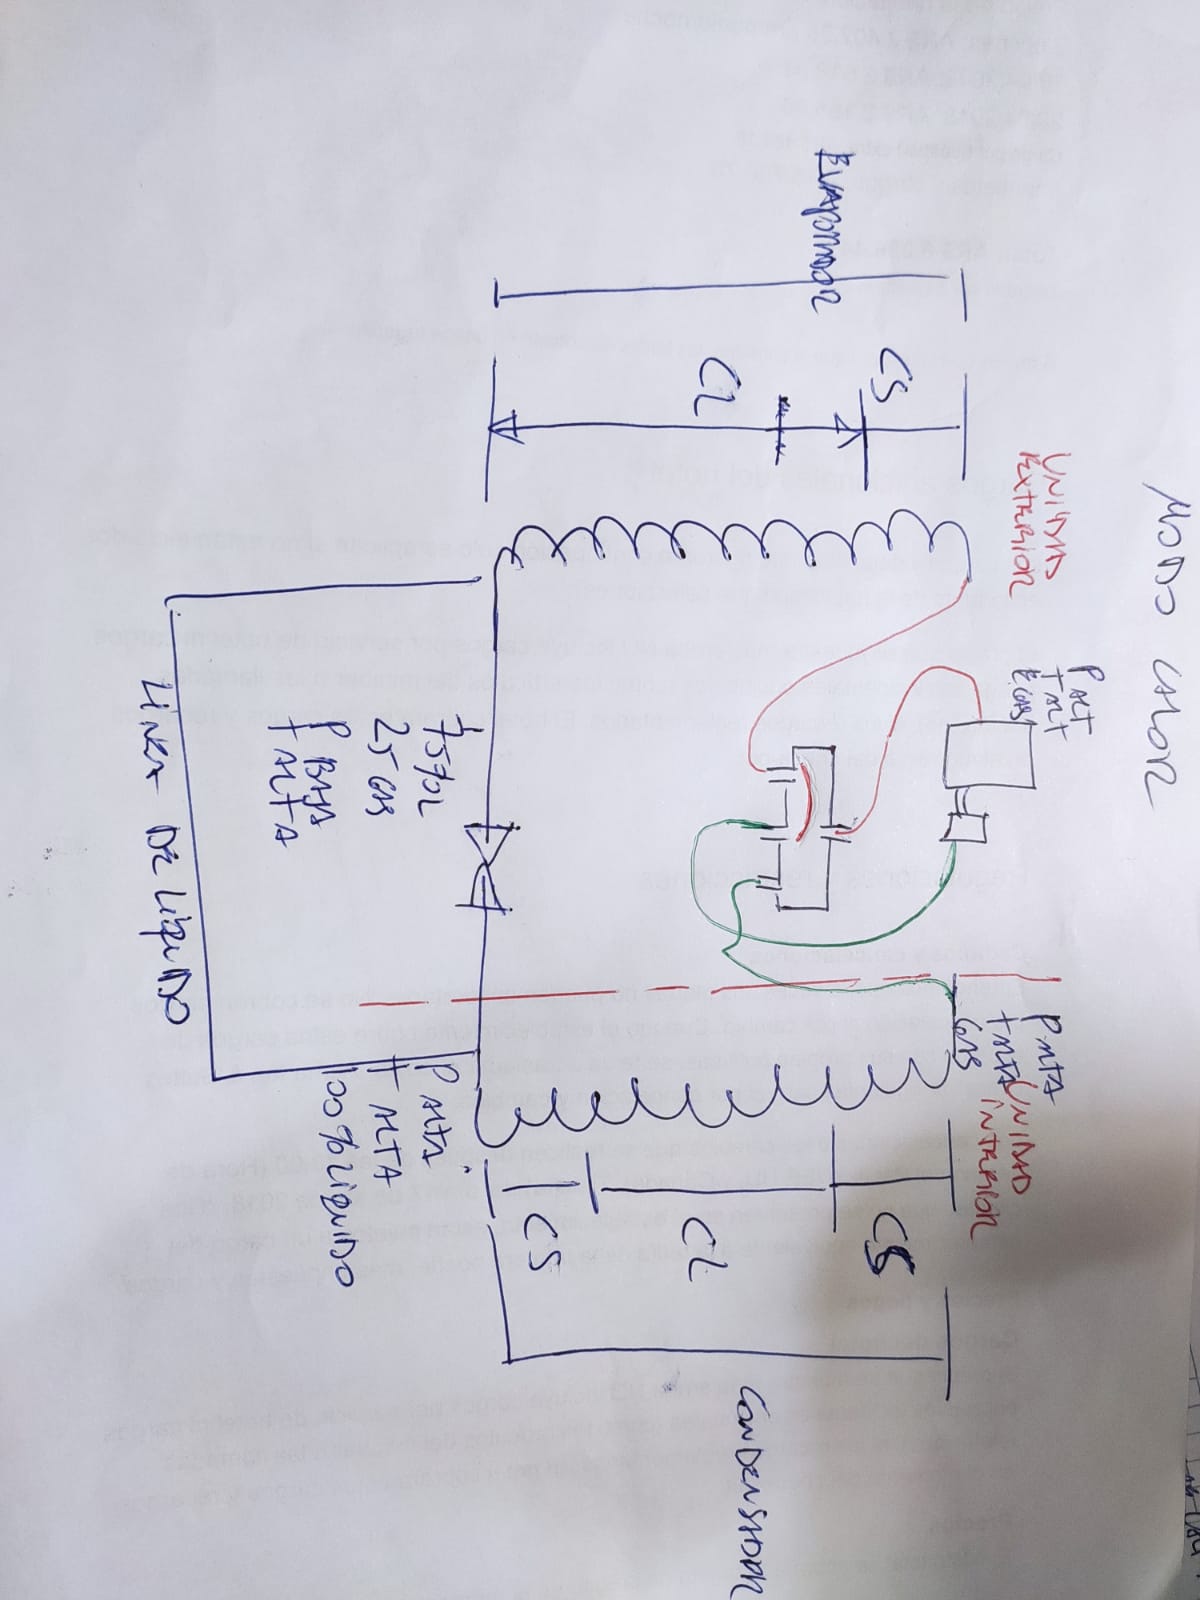 MODO CALOR
UNIDAD
EXTERIOR
P ALT
T ALT
E GAS
P ALTA
T ALTA
GAS
UNIDAD
INTERIOR
CS
EVAPORADOR
CL
CS
CL
CS
CONDENSADOR
75%L
25 GAS
P BAJA
T ALTA
P ALTA
T ALTA
100% LÍQUIDO
LÍNEA DE LÍQUIDO